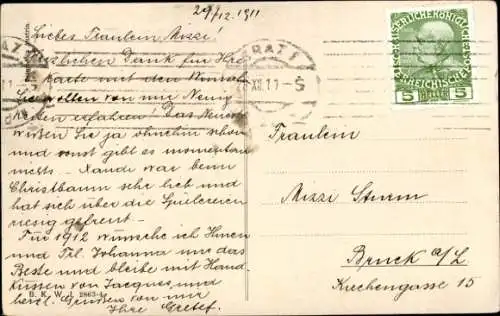 29/12. 1911
Liebes Fräulein Mizzi!
Herzlichen Dank für Ihre
Karte mit dem Wunsche
Sie wollen von mir Neuig-
keiten erfahren! Das Neueste
wißen Sie ja ohnehin schon
und sonst gibt es momentan
nichts. - Xandi war beim
Christbaum sehr lieb und
hat sich über die Spielereien
riesig gefreut. -
Für 1912 wünsche ich Ihnen
und Frl. Johanna nur das
Beste und bleibe mit Hand-
küssen von Jacques und
herzl. Grüssen von mir
Ihre Gretef.
B. K. W. I. 2863-4
GRAZ 1
XII. 11 - 5
KAISERLICHE KÖNIGLICHE
ÖSTERREICHISCHE
5 5
Fraulein
Mizzi Sturm
Bruck a/L
Kirchengasse 15